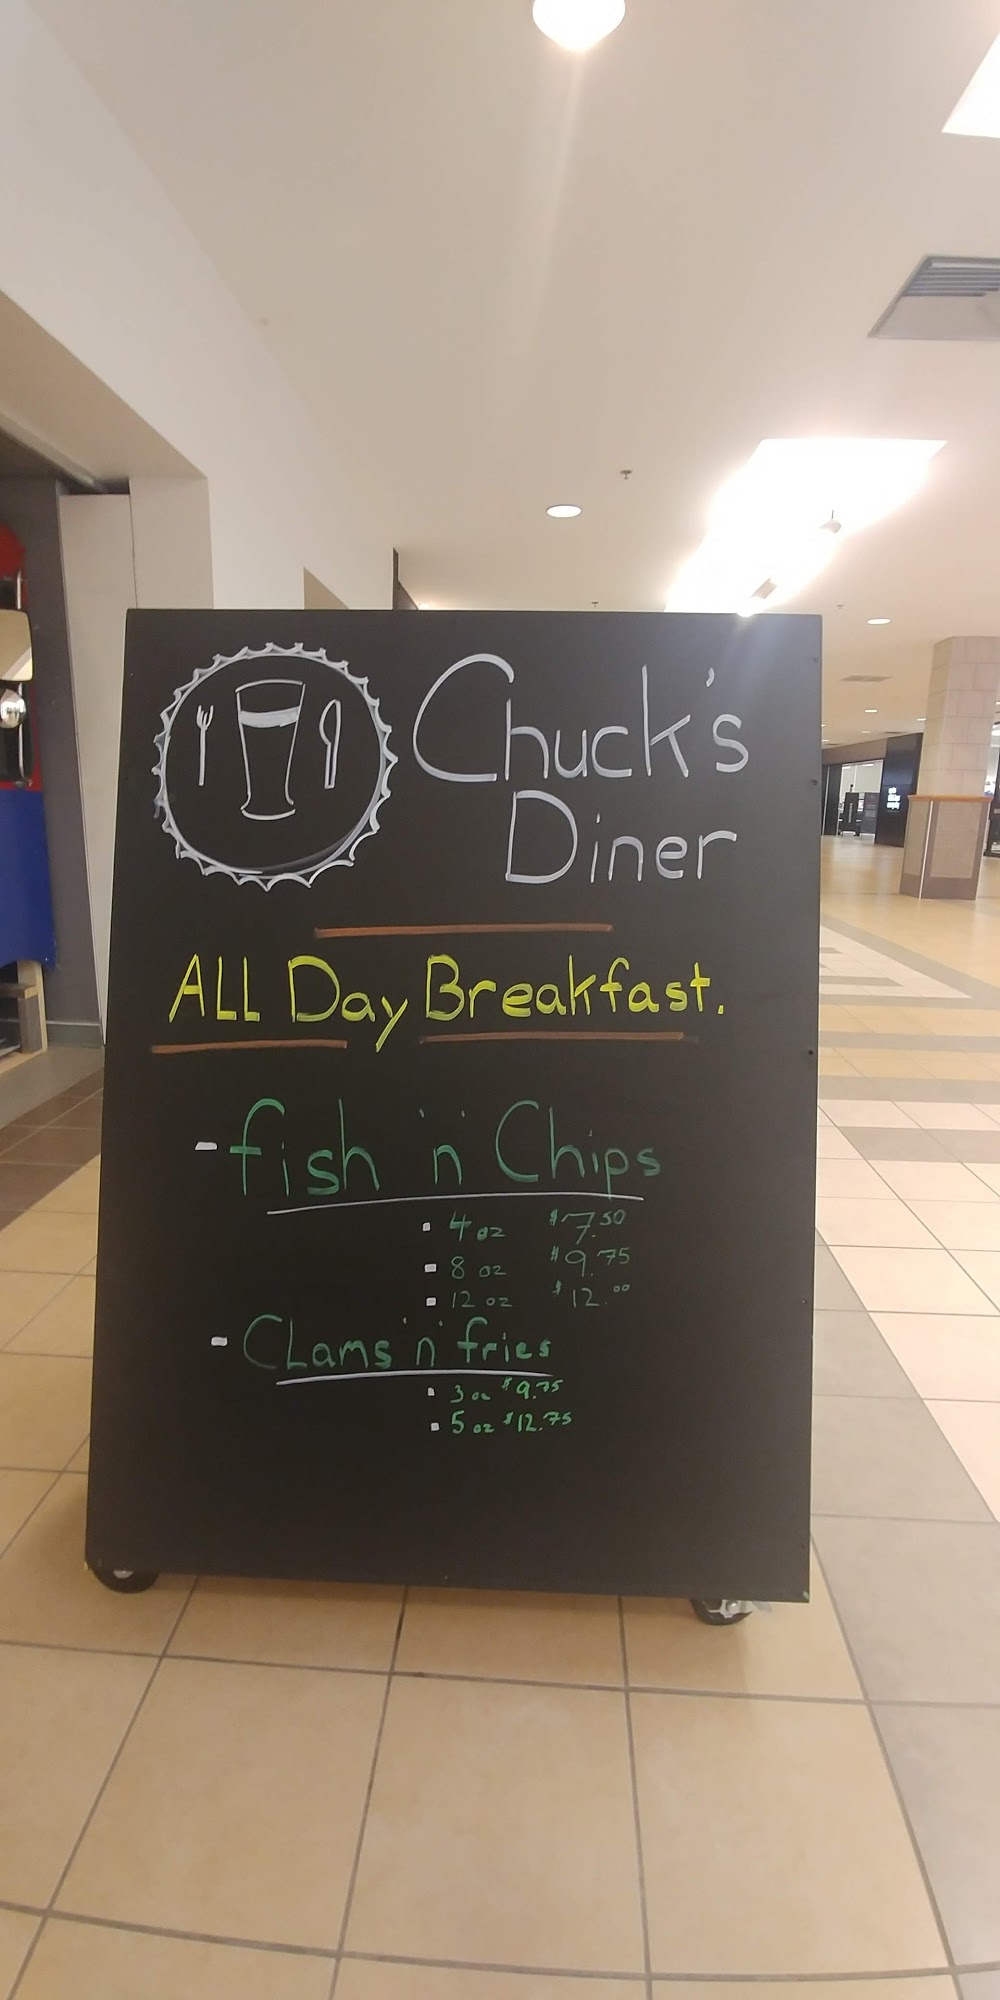 Chuck's
Diner
ALL Day Breakfast.
- fish 'n' Chips
▪ 4 oz $7.50
▪ 8 oz $9.75
▪ 12 oz $12.00
- CLams 'n' fries
▪ 3 oz $9.75
▪ 5 oz $12.75